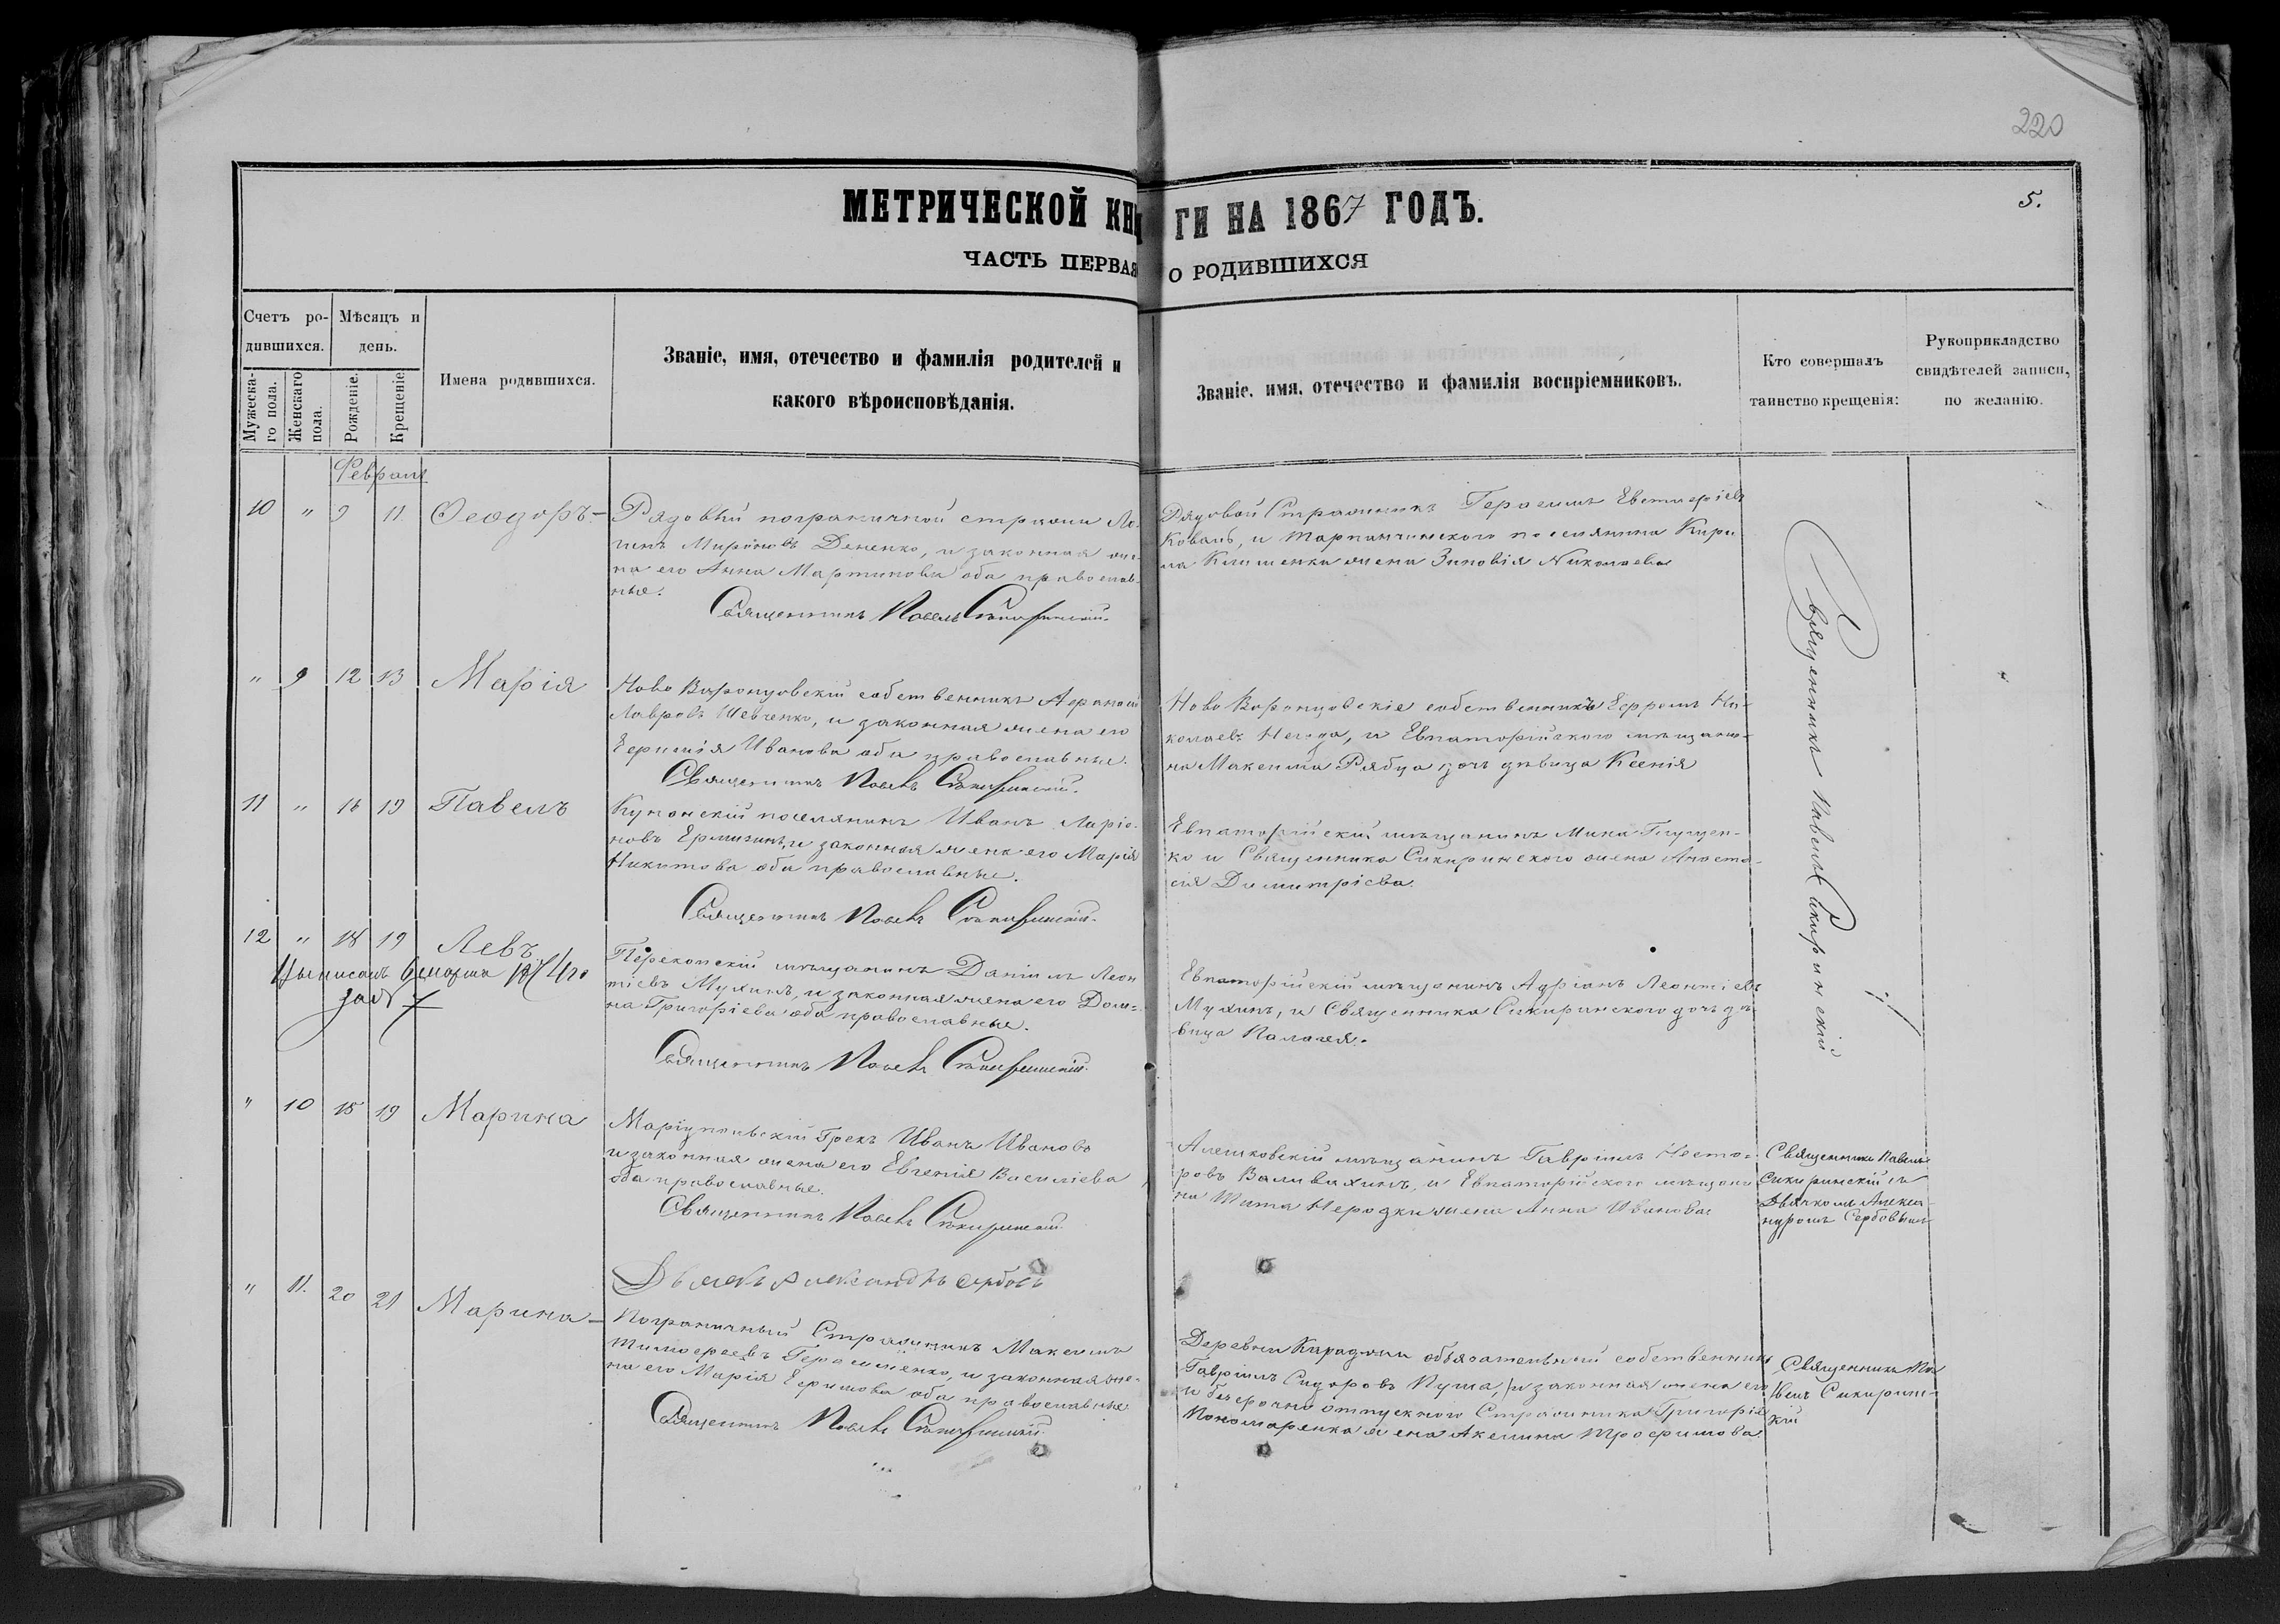 220
5.
МЕТРИЧЕСКОЙ КНИГИ НА 1867 ГОДЪ.
ЧАСТЬ ПЕРВАЯ О РОДИВШИХСЯ
Счетъ родившихся.
Мужескаго пола.
Женскаго пола.
Мѣсяцъ и день.
Рожденіе.
Крещеніе.
Имена родившихся.
Званіе, имя, отечество и фамилія родителей и
какого вѣроисповѣданія.
Званіе, имя, отечество и фамилія воспріемниковъ.
Кто совершалъ
таинство крещенія:
Рукоприкладство
свидѣтелей записи,
по желанію.
Февраль
10 " 9 11 Ѳеодоръ
Рядовый пограничной стражи Ло-
гинъ Мироновъ Дененко, и законная же-
на его Анна Мартинова оба православ-
ные.
Священникъ Павелъ Сикиринскій.
Рядовой Стражникъ Герасимъ
Коваль, и поселянина Кири-
ла жена Зиновія Николаева
Священникъ Павелъ Сикиринскій
" 9 12 13 Марія
Ново Воронцовскій собственникъ Аѳанасій
Лавровъ Шевченко, и законная жена его
Ефимія Иванова оба православные.
Священникъ Павелъ Сикиринскій.
Ново Воронцовскіе собственникъ Ефремъ Ни-
колаевъ Негода, и Евпаторійского мѣщани-
на Максима Рябца дочь дѣвица Ксенія
11 " 18 19 Павелъ
поселянинъ Иванъ Ларіо-
новъ и законная жена его Марія
Никитова оба православные.
Священникъ Павелъ Сикиринскій.
Евпаторійскій мѣщанинъ Мина
ко и Священника Сикиринского жена Анаста-
сія Димитріева.
12 " 18 19 Левъ
Перекопскій мѣщанинъ Даніилъ Леон
тіевъ Мухинъ, и законная жена его Дом-
на Григоріева оба православные.
Священникъ Павелъ Сикиринскій.
Евпаторійскій мѣщанинъ Адріанъ Леонтіевъ
Мухинъ, и Священника Сикиринского дочь дѣ-
вица Палагея.
" 10 18 19 Марина
Маріупольскій Грекъ Иванъ Ивановъ
и законная жена его Евгенія Василіева,
оба православные.
Священникъ Павелъ Сикиринскій
Дьячекъ Александръ Сербовъ
Алешковскій мѣщанинъ Гавріилъ Несто-
ровъ Валивахинъ, и Евпаторійского мѣщани
на Тита жена Анна Иванова
Священникъ Павелъ
Сикиринскій съ
Дьячкомъ Алекса-
ндромъ Сербовымъ
" 11. 20 21 Марина
Пограничный Стражникъ Максимъ
Тимофеевъ Герасименко, и законная же-
на его Марія Ефимова оба православные.
Священникъ Павелъ Сикиринскій.
Деревни Караджи обязательный собственникъ
Гавріилъ Сидоровъ Пуша, и законная жена его
и безсрочно отпускного Стражника Григорія
Пономаренка жена Акелина Трофимова.
Священникъ Па
велъ Сикирин-
кій